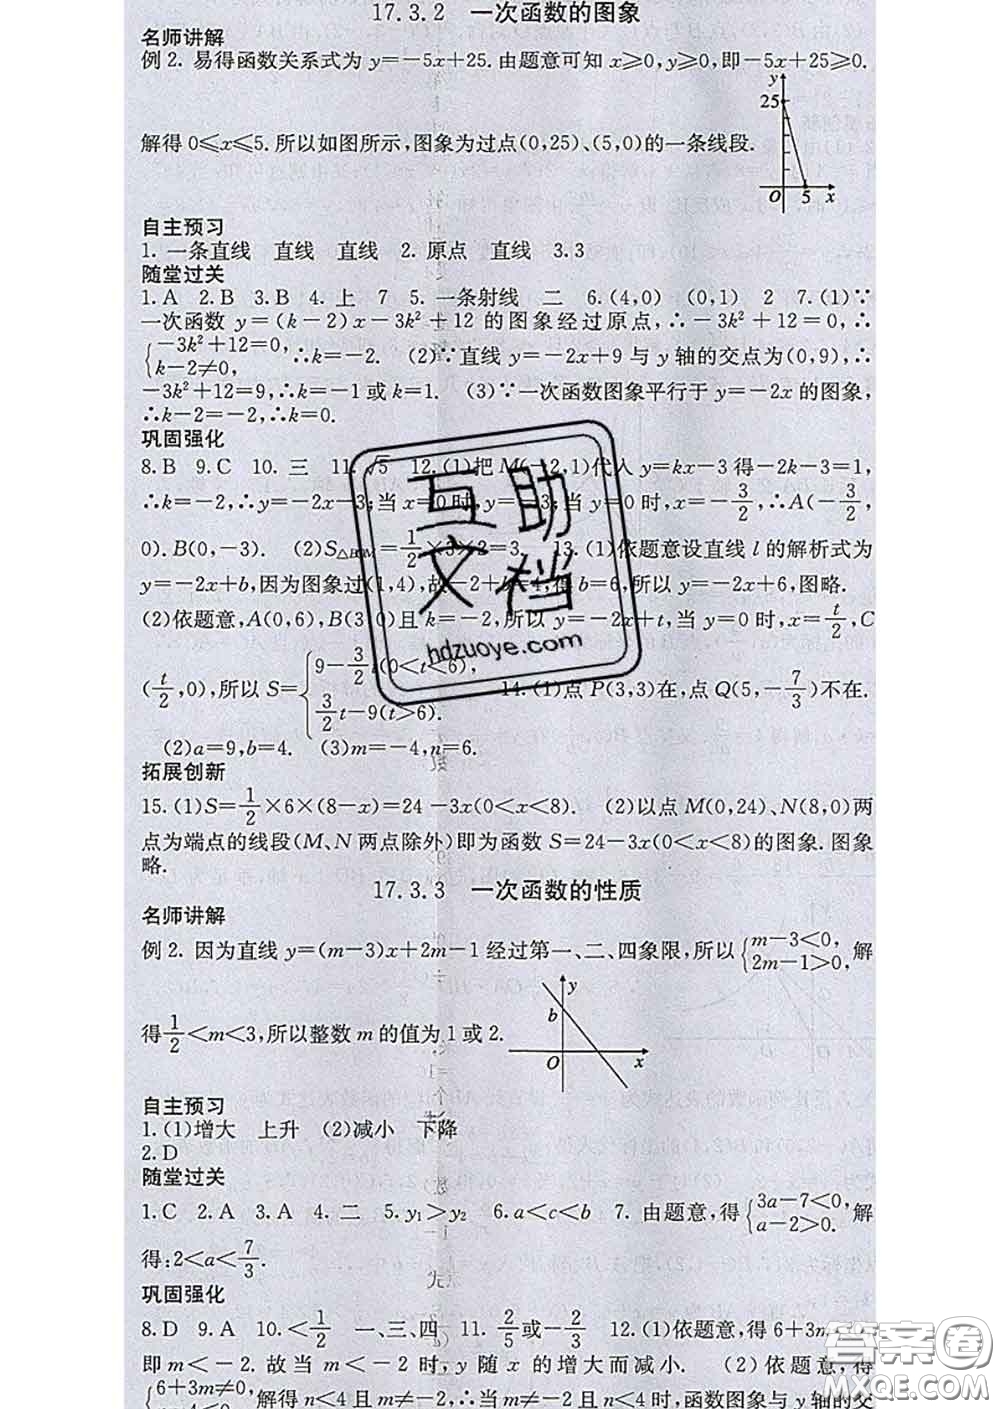 17.3.2 一次函数的图象
名师讲解
例2. 易得函数关系式为 y=-5x+25. 由题意可知 x≥0,y≥0,即-5x+25≥0.
y
25
解得 0≤x≤5. 所以如图所示,图象为过点(0,25)、(5,0)的一条线段.
O 5 x
自主预习
1. 一条直线 直线 直线 2. 原点 直线 3.3
随堂过关
1. A 2. B 3. B 4. 上 7 5. 一条射线 二 6. (4,0) (0,1) 2 7. (1)∵
一次函数 y=(k-2)x-3k²+12 的图象经过原点,∴-3k²+12=0,∴
{-3k²+12=0, k-2≠0, ∴k=-2. (2)∵直线 y=-2x+9 与 y 轴的交点为(0,9),∴
-3k²+12=9,∴k=-1 或 k=1. (3)∵一次函数图象平行于 y=-2x 的图象,
∴k-2=-2,∴k=0.
巩固强化
8. B 9. C 10. 三 11. √5 12. (1)把 M(-2,1)代入 y=kx-3 得-2k-3=1,
∴k=-2,∴y=-2x-3;当 x=0 时,y=-3;当 y=0 时,x=-3/2,∴A(-3/2,
0). B(0,-3). (2)S△BOM=1/2×3×2=3. 13. (1)依题意设直线 l 的解析式为
y=-2x+b,因为图象过(1,4),故-2+b=4,得 b=6,所以 y=-2x+6,图略.
(2)依题意,A(0,6),B(3,0)且 k=-2,所以 y=-2x+t,当 y=0 时,x=t/2,C
(t/2,0),所以 S={9-3/2t(0<t<6), 3/2t-9(t>6). 14. (1)点 P(3,3)在,点 Q(5,-7/3)不在.
(2)a=9,b=4. (3)m=-4,n=6.
拓展创新
15. (1)S=1/2×6×(8-x)=24-3x(0<x<8). (2)以点 M(0,24)、N(8,0)两
点为端点的线段(M、N 两点除外)即为函数 S=24-3x(0<x<8)的图象. 图象
略.
17.3.3 一次函数的性质
名师讲解
例2. 因为直线 y=(m-3)x+2m-1 经过第一、二、四象限,所以{m-3<0, 2m-1>0,解
y
b
得1/2<m<3,所以整数 m 的值为 1 或 2.
O x
自主预习
1. (1)增大 上升 (2)减小 下降
2. D
随堂过关
1. C 2. A 3. A 4. 二 5. y₁>y₂ 6. a<c<b 7. 由题意,得{3a-7<0, a-2>0. 解
得:2<a<7/3.
巩固强化
8. D 9. A 10. <1/2 一、三、四 11. 2/5或-2/3 12. (1)依题意,得 6+3m<0,
即 m<-2. 故当 m<-2 时,y 随 x 的增大而减小. (2)依题意,得
{6+3m≠0, 解得 n<4 且 m≠-2,∴当 m≠-2 且 n<4 时,函数图象与 y 轴的交
互助文档
hdzuoye.com
答案圈
MXQE.COM